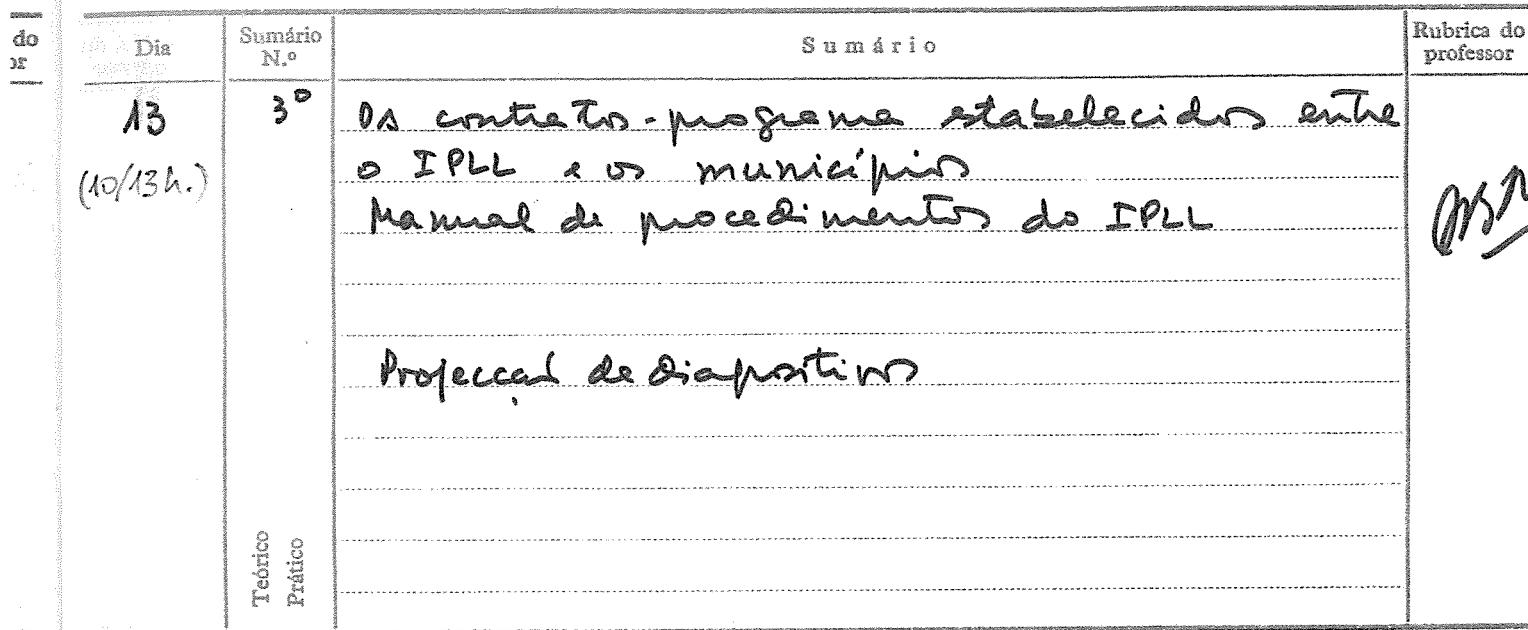 do
or
Dia
Sumário
N.º
Sumário
Rubrica do
professor
13
(10/13h.)
3º
Os contratos-programa estabelecidos entre
o IPLL e os municípios
Manual de procedimentos do IPLL
Projecçaõ de diapositivos
Teórico
Prático